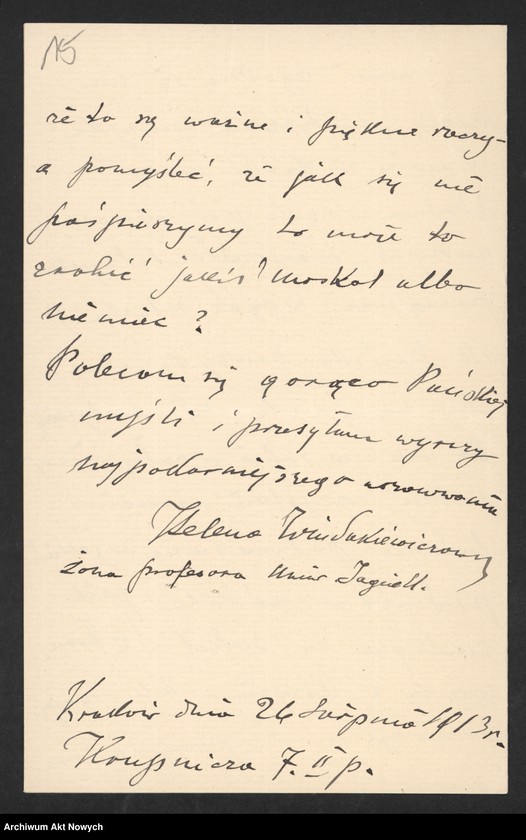 115
że to są ważne i piękne rzeczy
a pomyśleć, że jak się nie
pośpieszymy to może to
zrobić jakiś moskal albo
niemiec?
Polecam się gorąco Pańskiej
myśli i przesyłam wyrazy
najpodatniejszego uszanowania
Helena Windakiewiczowa
żona profesora Uniw Jagiell.
Kraków dnia 26 sierpnia 1913 r.
7. II p.
Archiwum Akt Nowych